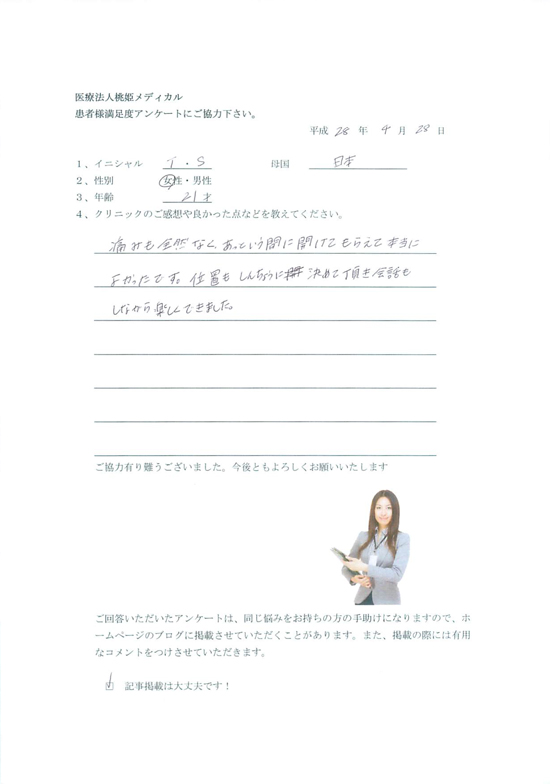 医療法人桃姫メディカル
患者様満足度アンケートにご協力下さい。
平成 28 年 4 月 28 日
1、イニシャル T・S 母国 日本
2、性別 女性・男性
3、年齢 21才
4、クリニックのご感想や良かった点などを教えてください。
痛みも全然なく、あっという間に開けてもらえて本当に
よかったです。位置もしんちょうに決めて頂き会話も
しながら楽しくできました。
ご協力有り難うございました。今後ともよろしくお願いいたします
ご回答いただいたアンケートは、同じ悩みをお持ちの方の手助けになりますので、ホ
ームページのブログに掲載させていただくことがあります。また、掲載の際には有用
なコメントをつけさせていただきます。
☑ 記事掲載は大丈夫です！